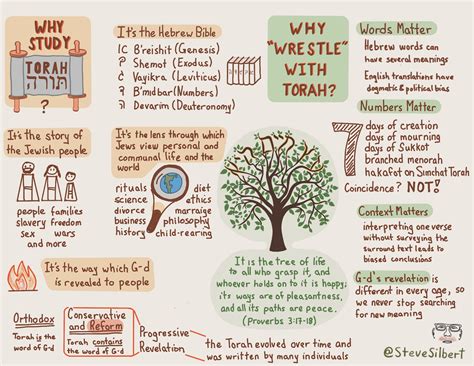 WHY
STUDY
TORAH
תורה
?
It's the Hebrew Bible
B'reishit (Genesis)
Shemot (Exodus)
Vayikra (Leviticus)
B'mdbar (Numbers)
Devarim (Deuteronomy)
WHY
"WRESTLE"
WITH
TORAH?
Words Matter
Hebrew words can
have several meanings
English translations have
dogmatic & political bias
Numbers Matter
7
days of creation
days of mourning
days of Sukkot
branched menorah
hakafot on Simchat Torah
Coincidence? NOT!
It's the story of
the Jewish people
people families
slavery freedom
sex wars
and more
It's the lens through which
Jews view personal and
communal life and the
world
rituals
science
divorce
business
history
diet
ethics
marraige
philosophy
child-rearing
It is the tree of life
to all who grasp it, and
whoever holds on to it is happy;
its ways are of pleasantness,
and all its paths are peace.
(Proverbs 3:17-18)
Context Matters
interpreting one verse
without surveying the
surround text leads to
biased conclusions
G-d's revelation is
different in every age, so
we never stop searching
for new meaning
It's the way which G-d
is revealed to people
Orthodox
Torah is the
word of G-d
Conservative
and Reform
Torah contains
the word of G-d
Progressive
Revelation
the Torah evolved over time and
was written by many individuals
@SteveSilbert